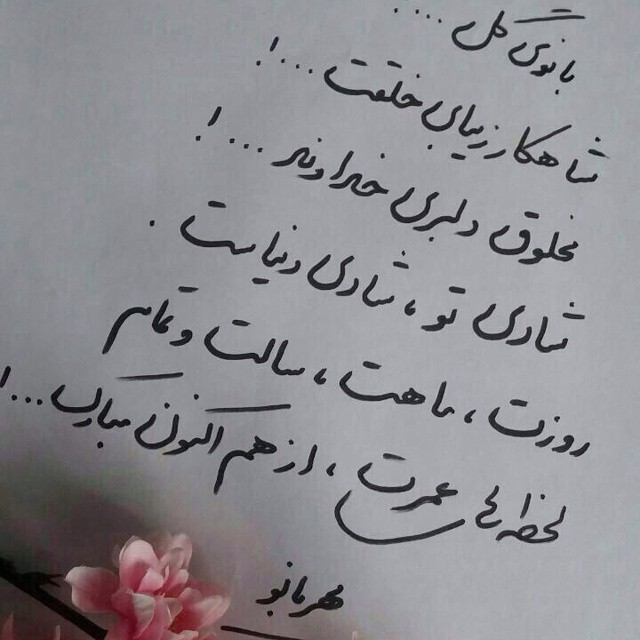 بانوی گل ....
شاهکار زیبای خلقت ....!
مخلوق دلبری خداوند ....!
شادی تو ، شادی دنیاست .
روزت ، ماهت ، سالت و تمام
لحظه‌های عمرت ، از هم اکنون مبارک ...!
مهربانو